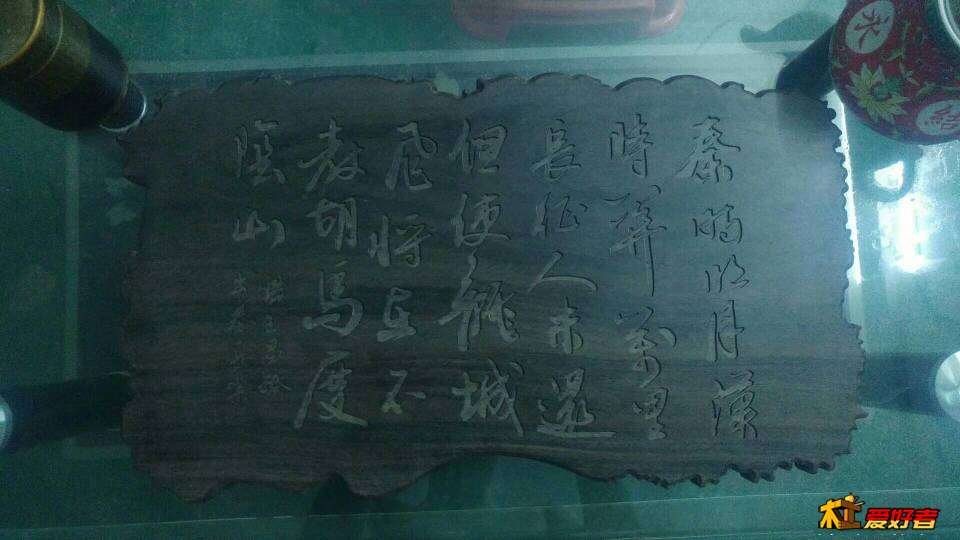 秦時明月漢
時關萬里
長征人未還
但使龍城
飛將在不
教胡馬度
陰山
木工爱好者